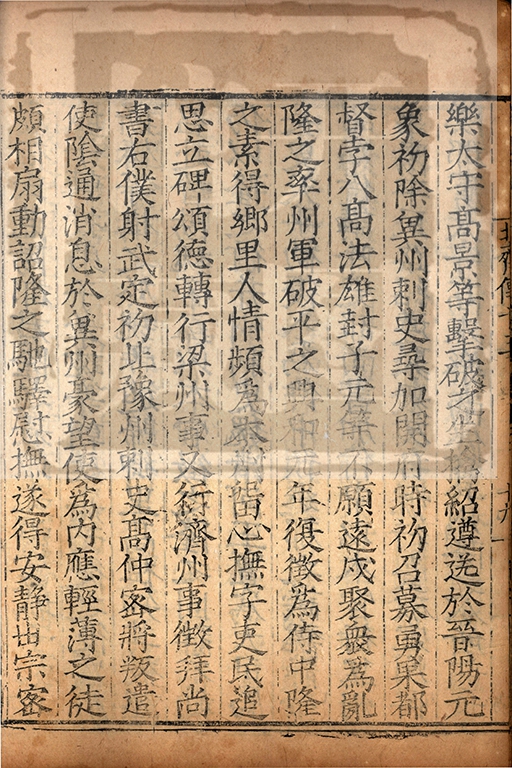 樂太守高景等擊破之生擒紹遵送於晉陽元
象初除兾州刺史尋加開府時初召募勇果都
督孛八高法雄封子元等不願遠戍聚衆為亂
隆之率州軍破平之興和元年復徵為侍中隆
之素得鄉里人情頻為本州留心撫字吏民追
思立碑頌德轉行梁州事又行濟州事徵拜尚
書右僕射武定初北豫州刺史高仲密將叛遣
使陰通消息於兾州豪望使為内應輕薄之徒
頗相扇動詔隆之馳驛慰撫遂得安静世宗密